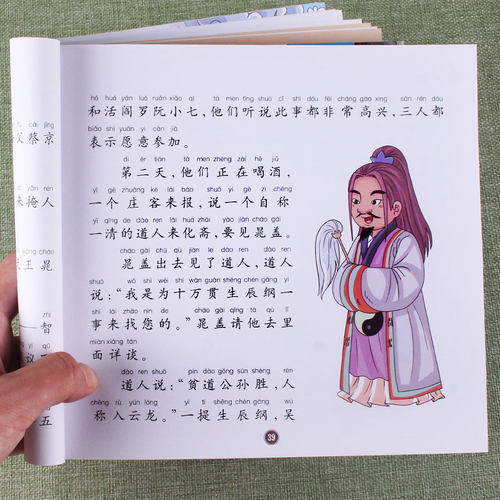 cài jīng
蔡京
yǎn rén
来掩人
王晁
zhì
智
五
hé huó yán luó ruǎn xiǎo qī tā men tīng shuō cǐ shì dōu fēi cháng gāo xìng sān rén dōu
和活阎罗阮小七,他们听说此事都非常高兴,三人都
biǎo shì yuàn yì cān jiā
表示愿意参加。
dì èr tiān tā men zhèng zài hē jiǔ
第二天,他们正在喝酒,
yí gè zhuāng kè lái bào shuō yí gè zì chēng
一个庄客来报,说一个自称
yì qīng de dào ren lái huà zhāi yào jiàn cháo gài
一清的道人来化斋,要见晁盖。
cháo gài chū qù jiàn le dào ren dào ren
晁盖出去见了道人,道人
shuō wǒ shì wèi shí wàn guàn shēn chén gāng yí
说:“我是为十万贯生辰纲一
shì lái zhǎo nín de cháo gài qǐng tā qù lǐ
事来找您的。”晁盖请他去里
miàn xiáng tán
面详谈。
dào ren shuō pín dào gōng sūn shèng rén
道人说:“贫道公孙胜,人
chēng rù yún lóng yì tí shēng chén gāng wú
称入云龙。”一提生辰纲,吴
39